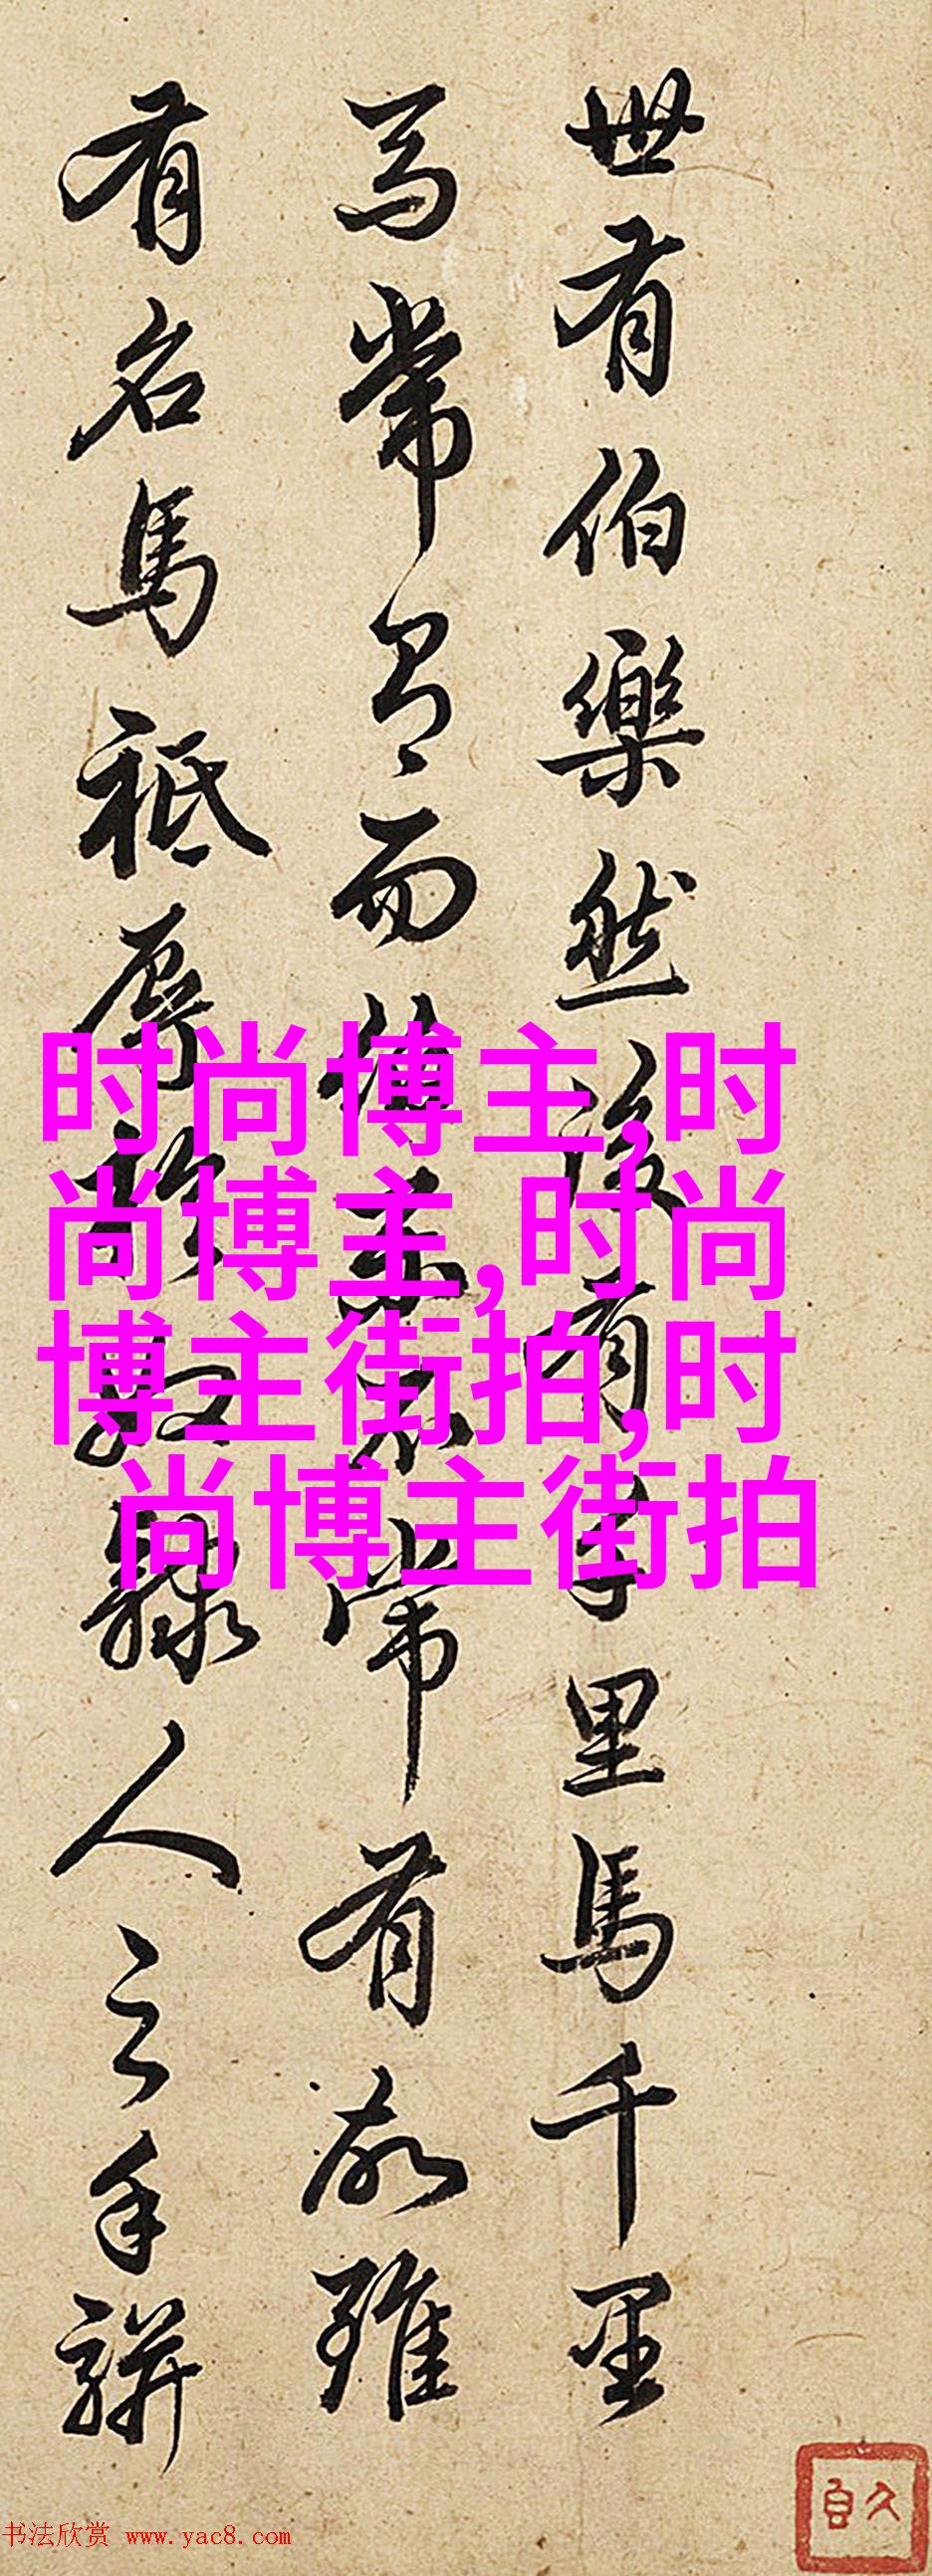 世有伯樂然後有千里馬千里
馬常有而伯樂不常有故雖
有名馬祗辱於奴隸人之手駢
时尚博主,时
尚博主,时尚
博主街拍,时
尚博主街拍
书法欣赏 www.yac8.com